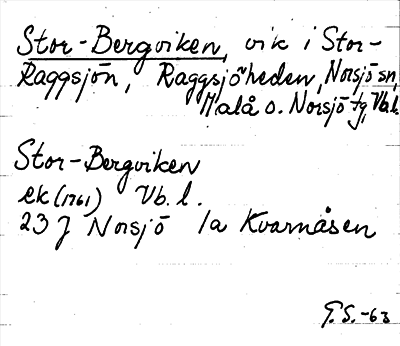 Stor-Bergviken, vik i Stor-
Raggsjön, Raggsjöheden, Norsjö sn,
Malå o. Norsjö tg, Vb.l.
Stor-Bergviken
ek (1761) Vb. l.
23 J Norsjö 1a Kvarnåsen
G.S.-63